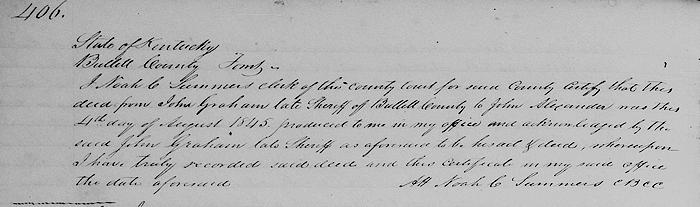 406.
State of Kentucky
Bullett County
I Noah C Summers clerk of the county court for said County Certify that this
deed from John Graham late Sheriff of Bullett County to John Alexander was this
4th day of August 1845 produced to me in my office and acknowledged by the
said John Graham late Sheriff as aforesaid to be his act & deed, whereupon
I have truly recorded said deed and this certificate in my said office
the date aforesaid Att Noah C Summers CBCC